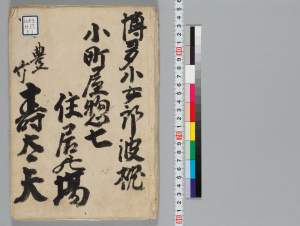 博多小女郎波枕
小町屋惣七
住居の場
豊竹
寿太夫